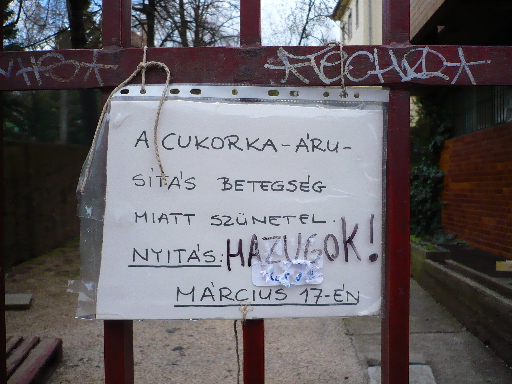 A CUKORKA-ÁRU-
SÍTÁS BETEGSÉG
MIATT SZÜNETEL.
NYITÁS: HAZUGOK!
MÁRCIUS 17-ÉN